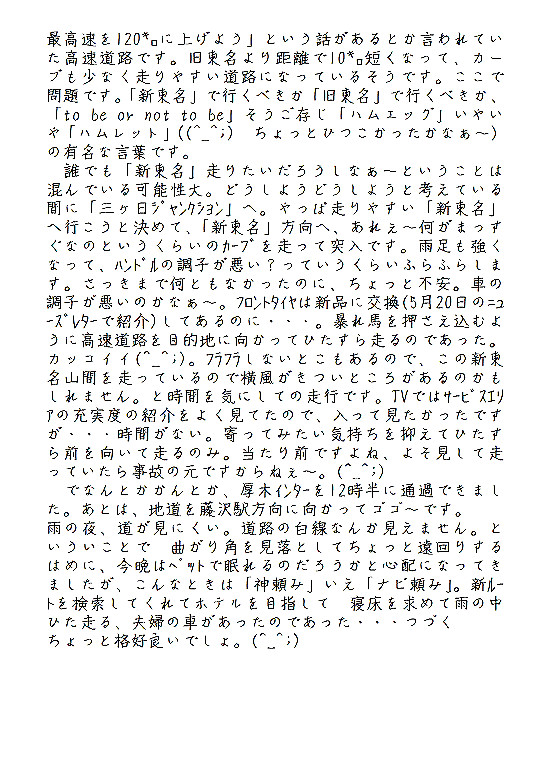 最高速を120㌔に上げよう」という話があるとか言われてい
た高速道路です。旧東名より距離で10㌔短くなって、カー
ブも少なく走りやすい道路になっているそうです。ここで
問題です。「新東名」で行くべきか「旧東名」で行くべきか、
「to be or not to be」そうご存じ「ハムエッグ」いやい
や「ハムレット」((^_^;)　ちょっとひつこかったかなぁ～)
の有名な言葉です。
　誰でも「新東名」走りたいだろうしなぁ～ということは
混んでいる可能性大。どうしようどうしようと考えている
間に「三ヶ日ｼﾞｬﾝｸｼｮﾝ」へ。やっぱ走りやすい「新東名」
へ行こうと決めて、「新東名」方向へ、あれぇ～何がまっす
ぐなのというくらいのｶｰﾌﾞを走って突入です。雨足も強く
なって、ﾊﾝﾄﾞﾙの調子が悪い？っていうくらいふらふらしま
す。さっきまで何ともなかったのに、ちょっと不安。車の
調子が悪いのかなぁ～。ﾌﾛﾝﾄﾀｲﾔは新品に交換(5月20日のﾆｭ
ｰｽﾞﾚﾀｰで紹介)してあるのに・・・。暴れ馬を押さえ込むよ
うに高速道路を目的地に向かってひたすら走るのであった。
カッコイイ(^_^;)。ﾌﾗﾌﾗしないとこもあるので、この新東
名山間を走っているので横風がきついところがあるのかも
しれません。と時間を気にしての走行です。TVではｻｰﾋﾞｽｴﾘ
ｱの充実度の紹介をよく見てたので、入って見たかったです
が・・・時間がない。寄ってみたい気持ちを抑えてひたす
ら前を向いて走るのみ。当たり前ですよね、よそ見して走
っていたら事故の元ですからねぇ～。(^_^;)
　でなんとかかんとか、厚木ｲﾝﾀｰを12時半に通過できまし
た。あとは、地道を藤沢駅方向に向かってゴゴ～です。
雨の夜、道が見にくい。道路の白線なんか見えません。と
いういことで　曲がり角を見落としてちょっと遠回りする
はめに、今晩はﾍﾞｯﾄで眠れるのだろうかと心配になってき
ましたが、こんなときは「神頼み」いえ「ナビ頼み』。新ﾙｰ
ﾄを検索してくれてホテルを目指して　寝床を求めて雨の中
ひた走る、夫婦の車があったのであった・・・つづく
ちょっと格好良いでしょ。(^_^;)